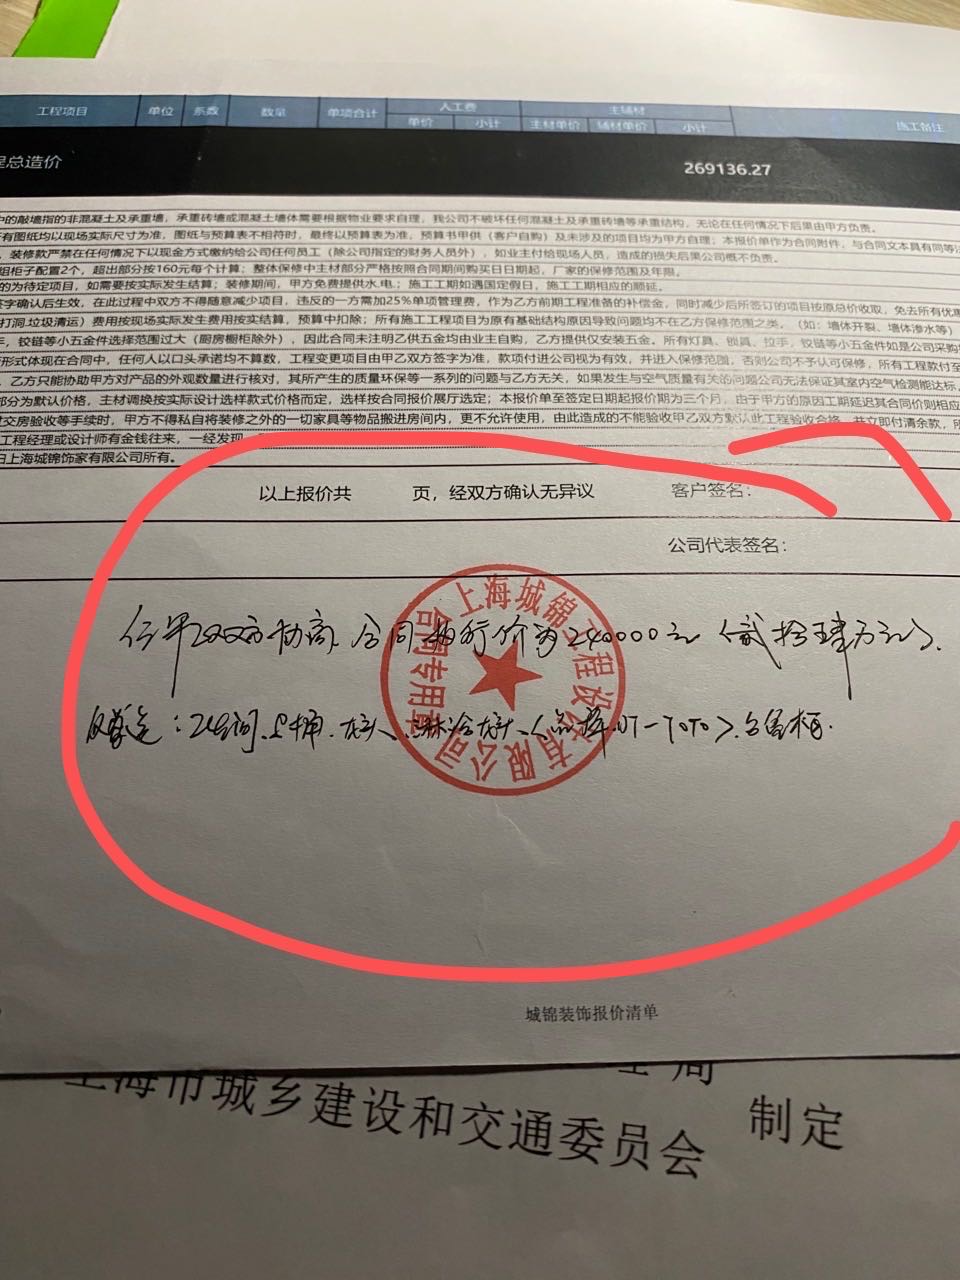 工程项目 单位 系数 数量 单项合计 人工费 主辅材 施工备注
单价 小计 主材单价 辅材单价 小计
程总造价 269136.27
中的敲墙指的非混凝土及承重墙，承重砖墙或混凝土墙体需要根据物业要求自理，我公司不破坏任何混凝土及承重砖墙等承重结构，无论在任何情况下后果由甲方负责。
有图纸均以现场实际尺寸为准，图纸与预算表不相符时，最终以预算表为准，预算书甲供（客户自购）及未涉及的项目均为甲方自理；本报价单作为合同附件，与合同文本具有同等法
，装修款严禁在任何情况下以现金方式缴纳给公司任何员工（除公司指定的财务人员外），如业主付给现场人员，造成的损失后果公司概不负责。
组柜子配置2个，超出部分按160元每个计算；整体保修中主材部分严格按照合同期间购买日日期起，厂家的保修范围及年限。
的为待定项目，如需要按实际发生结算；装修期间，甲方免费提供水.电；施工工期如遇国定假日，施工工期相应的顺延。
签字确认后生效，在此过程中双方不得随意减少项目，违反的一方需加25%单项管理费，作为乙方前期工程准备的补偿金，同时减少后所签订的项目按原总价收取，免去所有优惠
打洞.垃圾清运）费用按现场实际发生费用按实结算，预算中扣除；所有施工工程项目为原有基础结构原因导致问题均不在乙方保修范围之类。（如：墙体开裂、墙体渗水等）
，铰链等小五金件选择范围过大（厨房橱柜除外），因此合同未注明乙供五金均由业主自购，乙方提供仅安装五金。所有灯具、锁具，拉手，铰链等小五金件如是公司采购
形式体现在合同中，任何人以口头承诺均不算数，工程变更项目由甲乙双方签字为准，款项付进公司视为有效，并进入保修范围，否则公司不予认可保修，所有工程款付至
，乙方只能协助甲方对产品的外观数量进行核对，其所产生的质量环保等一系列的问题与乙方无关，如果发生与空气质量有关的问题公司无法保证其室内空气检测能达标。
部分为默认价格，主材调换按实际选样款式价格而定，选样按合同报价展厅选定；本报价单至签定日期起报价期为三个月，由于甲方的原因工期延迟其合同价则相应
过交房验收等手续时，甲方不得私自将装修之外的一切家具等物品搬进房间内，更不允许使用，由此造成的不能验收甲乙双方默认此工程验收合格，并立即付清余款，所
工程经理或设计师有金钱往来，一经发现
归上海城锦饰家有限公司所有。
以上报价共 页，经双方确认无异议 客户签名：
公司代表签名：
经甲乙双方协商，合同执行价为240000元（贰拾肆万元）.
及赠送：卫生间.马桶.龙头、淋浴龙头、 TOTO）.台盆柜.
上海城锦工程设 有限公司
合同专用章
城锦装饰报价清单
上海市城乡建设和交通委员会 制定